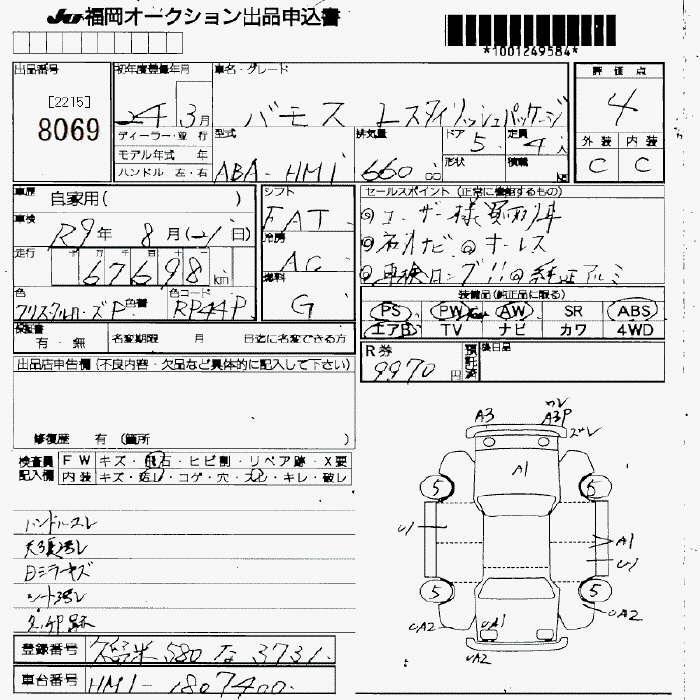 JU福岡オークション出品申込書
*1001249584*
出品番号 初年度登録年月 車名・グレード 評価点
[2215]
8069
24 3月 バモス Lスタイリッシュパッケージ 4
ディーラー・並行 型式 排気量 ドア 定員 外装 内装
モデル年式 年 5 4人 C C
ハンドル 左・右 ABA-HM1 660cc 形状 積載 kg
車歴 自家用( ) シフト セールスポイント(正常に機能するもの)
FAT ◎ユーザー様買取車
車検 R9年8月(21日) 冷房
AC ◎社外ナビ◎キーレス
走行 67698km 燃料
G ◎車検ロング!!◎純正アルミ
色 クリスタルローズP 色替 色コード RP44P 装備品(純正品に限る)
PS PW AW SR ABS
検査書 有・無 名変期限 月 日迄に名変できる方 エアB TV ナビ カワ 4WD
出品店申告欄(不良内容・欠品など具体的に記入して下さい) R券 9970円 預託済 後日品
修復歴 有 (箇所 )
検査員 FW キズ・飛石・ヒビ割・リペア跡・X要
記入欄 内装 キズ・汚レ・コゲ・穴・スレ・キレ・破レ
A3
A3P
A1
5 5
U1
A1
U1
5 5
UA2 UA1 UA2
UA2
ハンドルスレ
天張汚レ
シート汚レ
登録番号 久留米 580 な 3731
車台番号 HM1-1807400